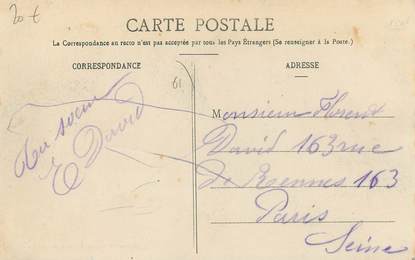 20 €
CARTE POSTALE
La Correspondance au recto n'est pas acceptée par tous les Pays Étrangers (Se renseigner à la Poste.)
CORRESPONDANCE
ADRESSE
61
Ta soeur
E David
Monsieur Florent
David 163 rue
de Rennes 163
Paris
Seine